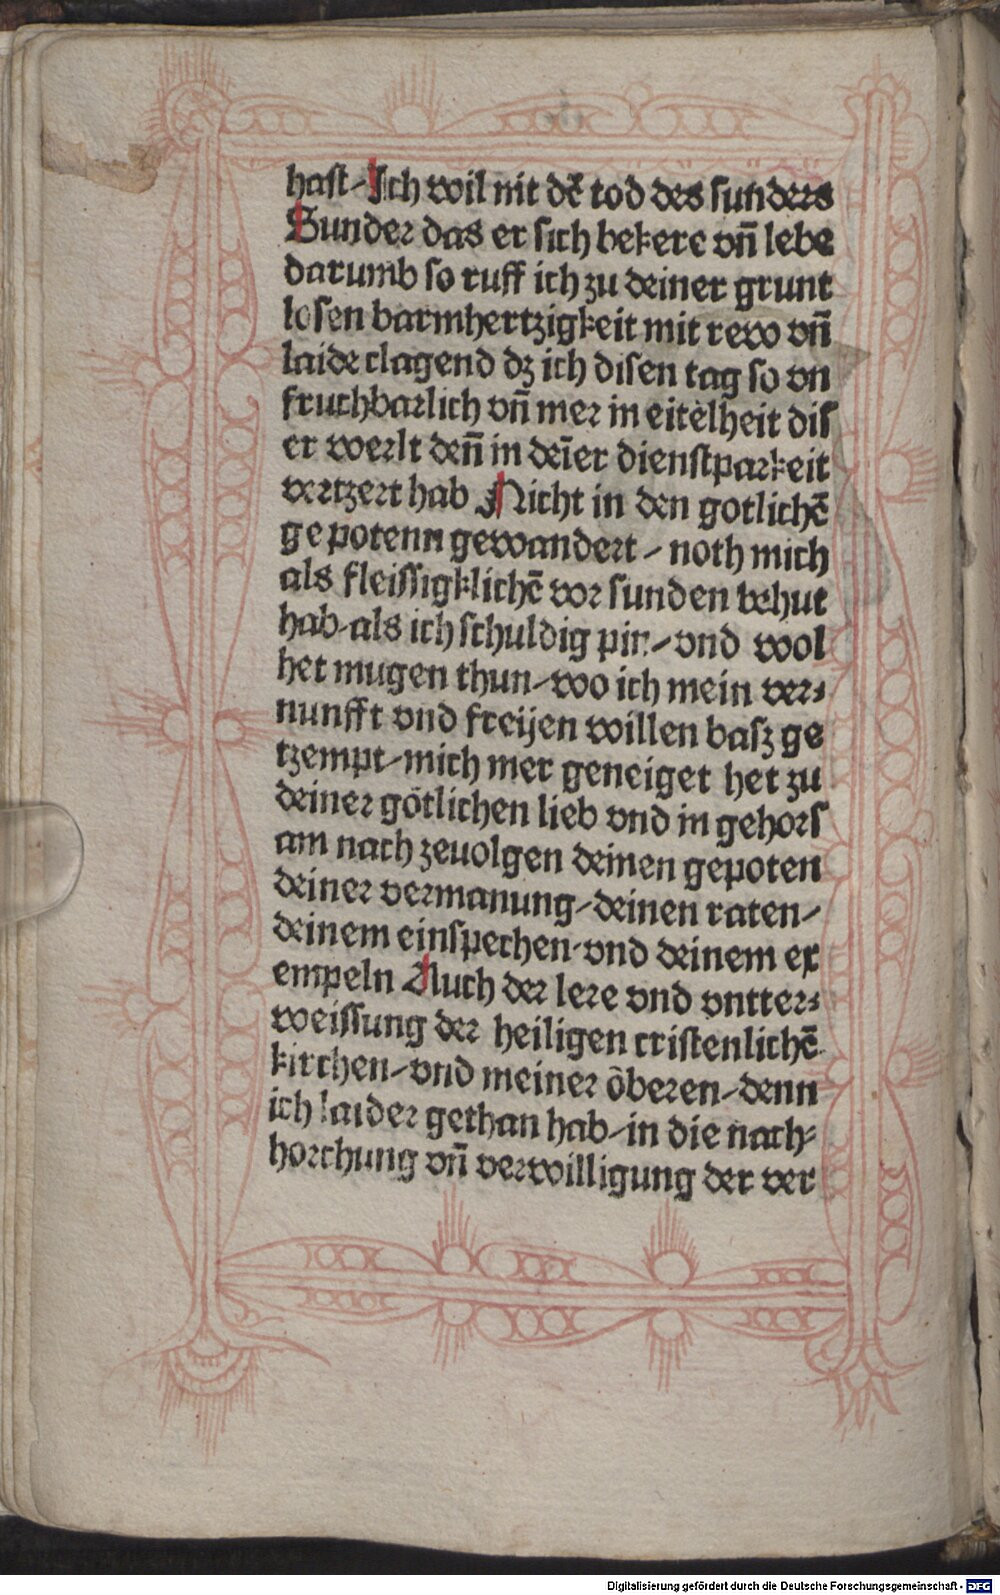 haſt-Ich wil nit dē tod des ſunders
Sunder das er ſich bekere vn̄ lebe
darumb ſo ruff ich zu deiner grunt
loſen barmhertzigkeit mit rew vn̄
laide clagend dz ich diſen tag ſo vn
fruchbarlich vn̄ mer in eitelheit diſ
er werlt den̄ in deīer dienſtparkeit
vertzert hab Nicht in den gotlichē
gepotenn gewandert-noch mich
als fleiſſigklichē vor ſunden behut
hab-als ich ſchuldig pin-vnd wol
het mugen thun-wo ich mein ver⸗
nunfft vnd freijen willen baſz ge
tzempt-mich mer geneiget het zu
deiner götlichen lieb vnd in gehorſ
am nach zeuolgen deinen gepoten
deiner vermanung-deinen raten-
deinem einſpechen-vnd deinem ex
empeln Auch der lere vnd vntter⸗
weiſſung der heiligen criſtenlichē
kirchen-vnd meiner öberen-denn
ich laider gethan hab-in die nach⸗
horchung vn̄ verwilligung der ver
Digitalisierung gefördert durch die Deutsche Forschungsgemeinschaft - DFG